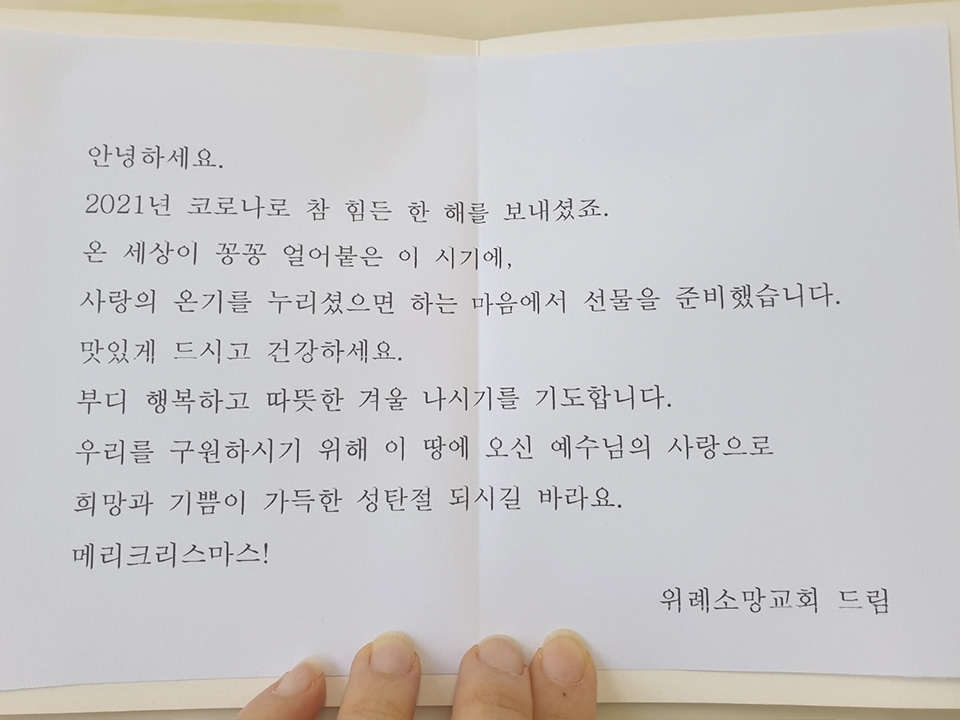 안녕하세요.
2021년 코로나로 참 힘든 한 해를 보내셨죠.
온 세상이 꽁꽁 얼어붙은 이 시기에,
사랑의 온기를 누리셨으면 하는 마음에서 선물을 준비했습니다.
맛있게 드시고 건강하세요.
부디 행복하고 따뜻한 겨울 나시기를 기도합니다.
우리를 구원하시기 위해 이 땅에 오신 예수님의 사랑으로
희망과 기쁨이 가득한 성탄절 되시길 바라요.
메리크리스마스!
위례소망교회 드림